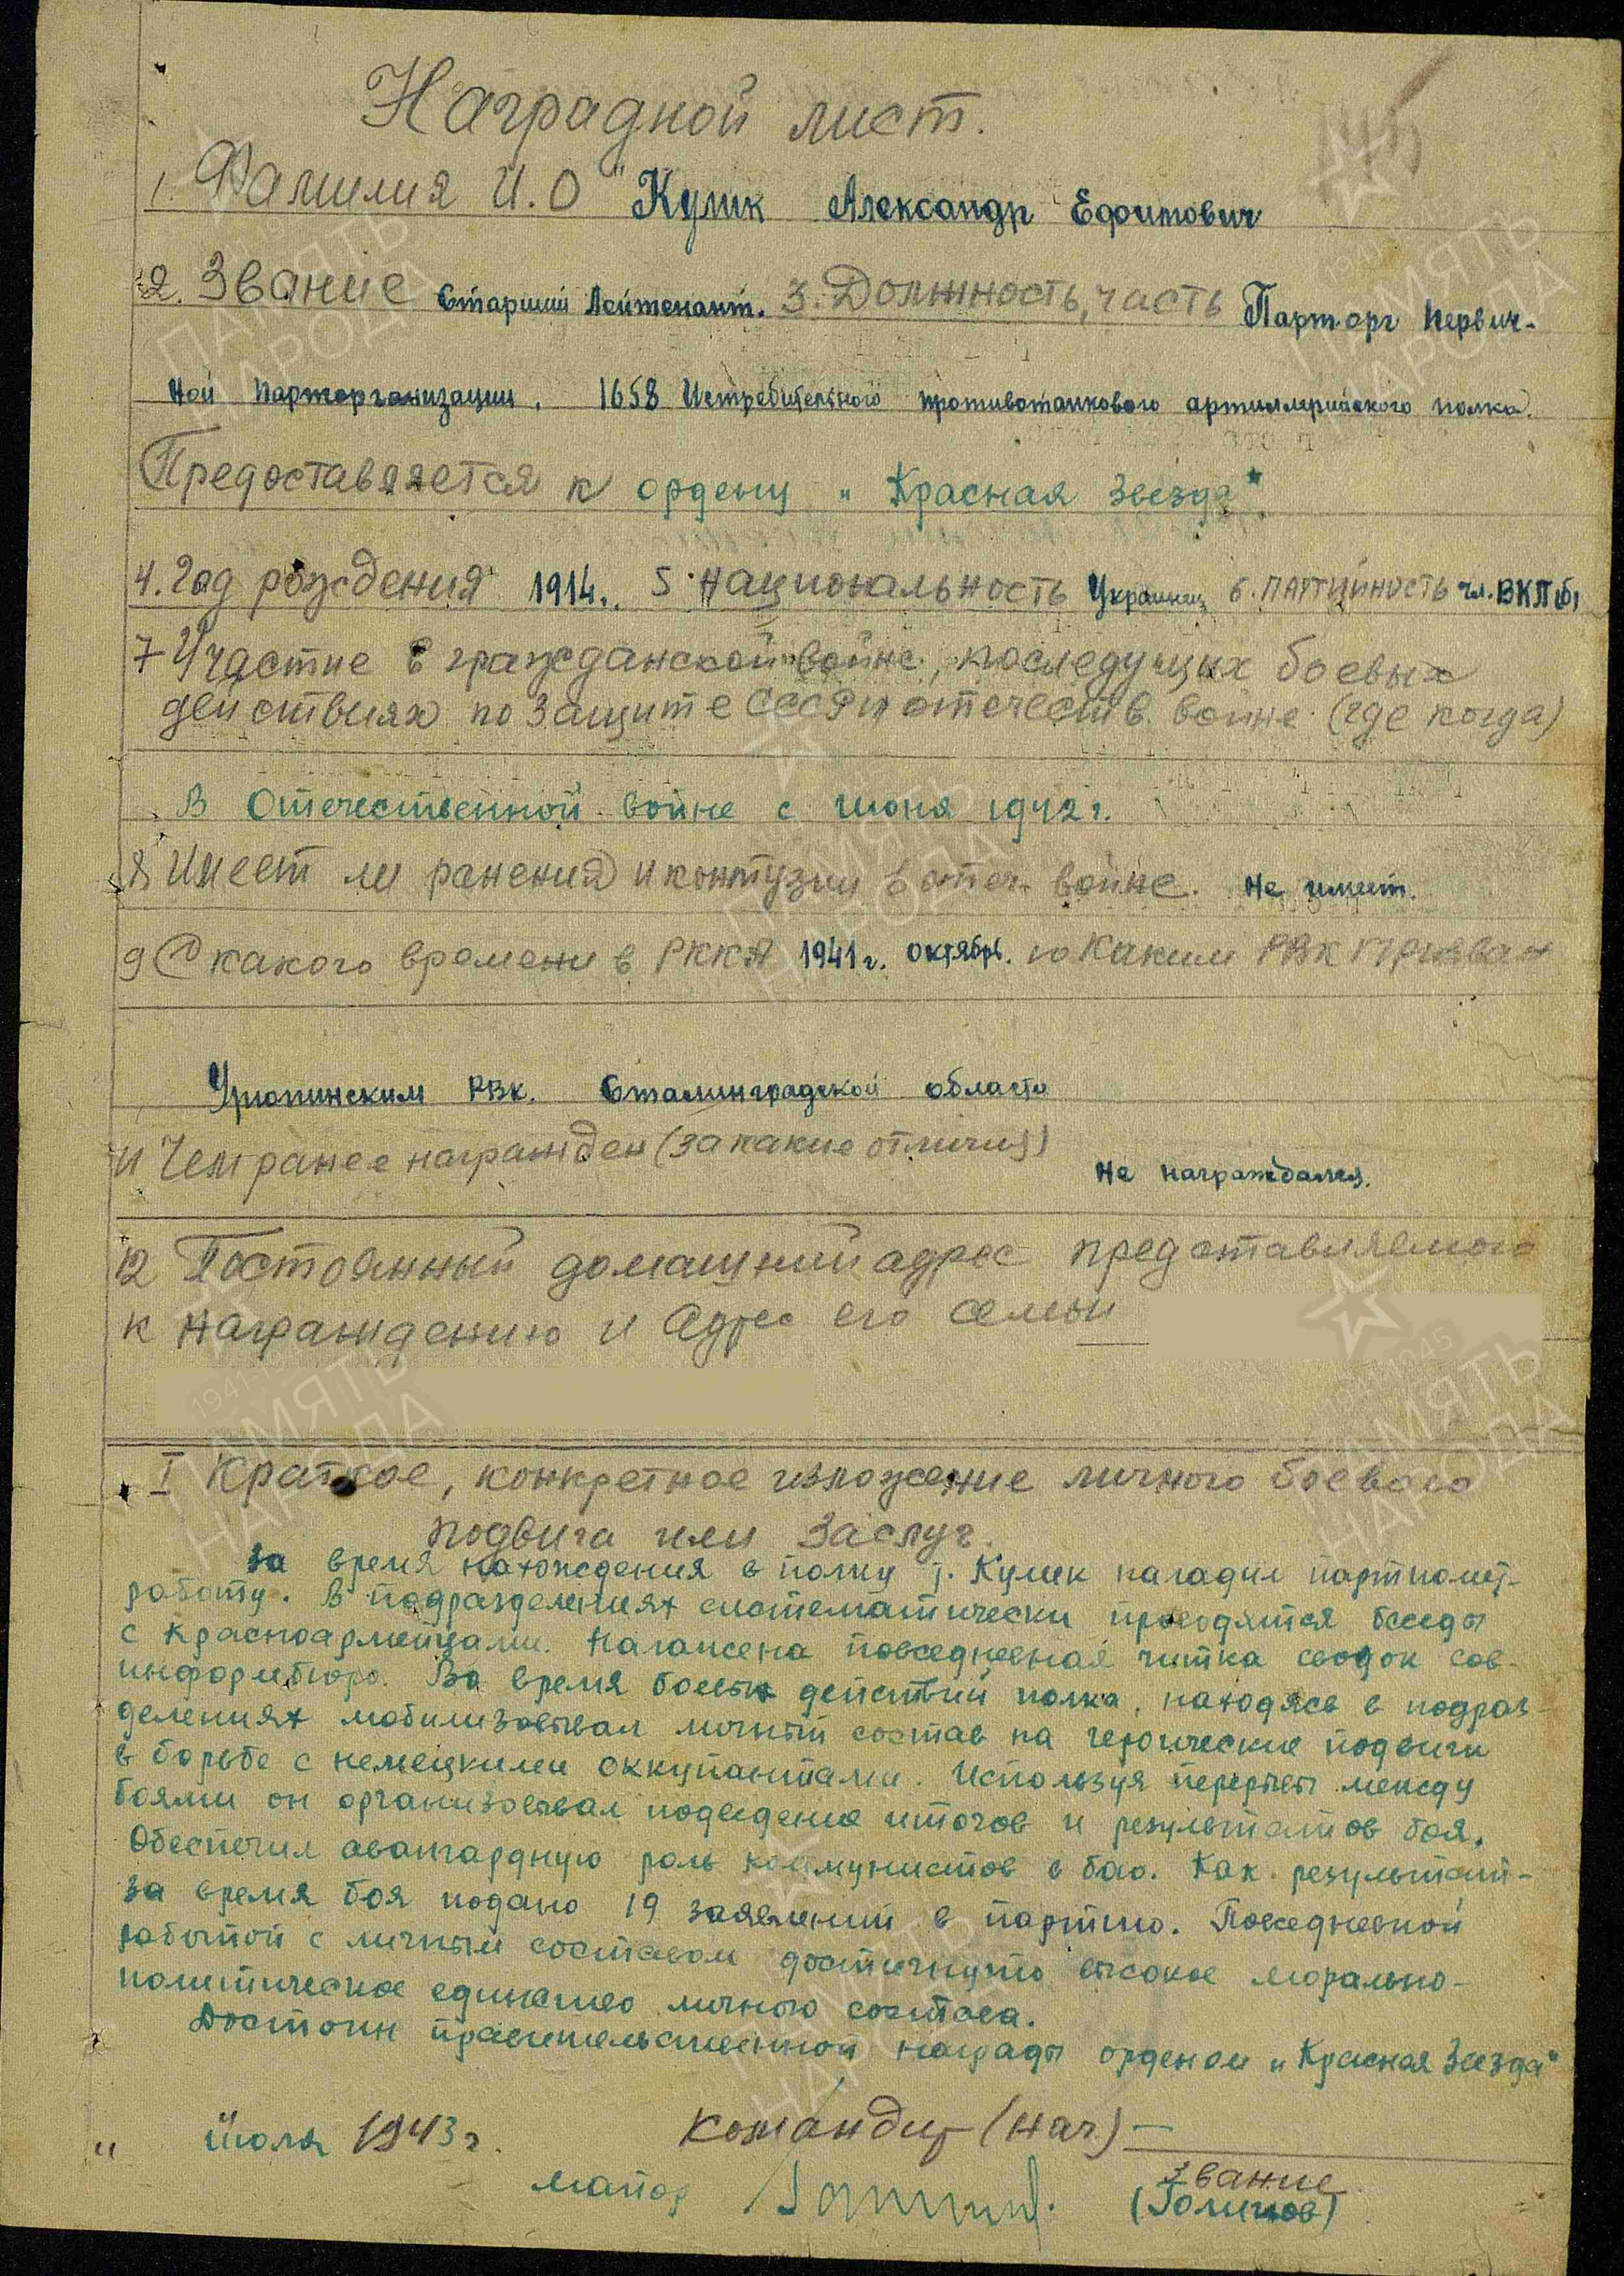 Наградной лист.
1. Фамилия И.О Кулик Александр Ефимович
2. Звание Старший Лейтенант. 3. Должность, часть Парторг первич-
ной парторганизации, 1658 Истребительного противотанкового артиллерийского полка.
Предоставляется к ордену „Красная Звезда"
4. Год рождения 1914. 5. Национальность Украинец 6. Партийность чл. ВКП(б)
7 Участие в гражданской войне, последующих боевых
действиях по защите СССР и отечеств. войне (где когда)
В Отечественной войне с июня 1942 г.
8 Имеет ли ранения и контузии в отеч. войне. не имеет.
9 С какого времени в РККА 1941 г. октябрь. 10 Каким РВК призван
Урюпинским РВК. Сталинградской области
11 Чем ранее награжден (за какие отличия) не награждался.
12 Постоянный домашний адрес представляемого
к награждению и адрес его семьи
I Краткое, конкретное изложение личного боевого
подвига или заслуг.
За время нахождения в полку т. Кулик наладил партполит-
работу. В подразделениях систематически проводятся беседы
с красноармейцами. Налажена повседневная читка сводок Сов-
информбюро. Во время боевых действий полка, находясь в подраз-
делениях мобилизовывал личный состав на героические подвиги
в борьбе с немецкими оккупантами. Используя перерывы между
боями он организовывал подведение итогов и результатов боя.
Обеспечил авангардную роль коммунистов в бою. Как результат-
за время боя подано 19 заявлений в партию. Повседневной
работой с личным составом достигнуто высокое морально-
политическое единство личного состава.
Достоин правительственной награды орденом „Красная Звезда"
" " Июля 1943 г. Командир (нач) —
звание
майор (Голиков)
ПАМЯТЬ
НАРОДА
1941-1945